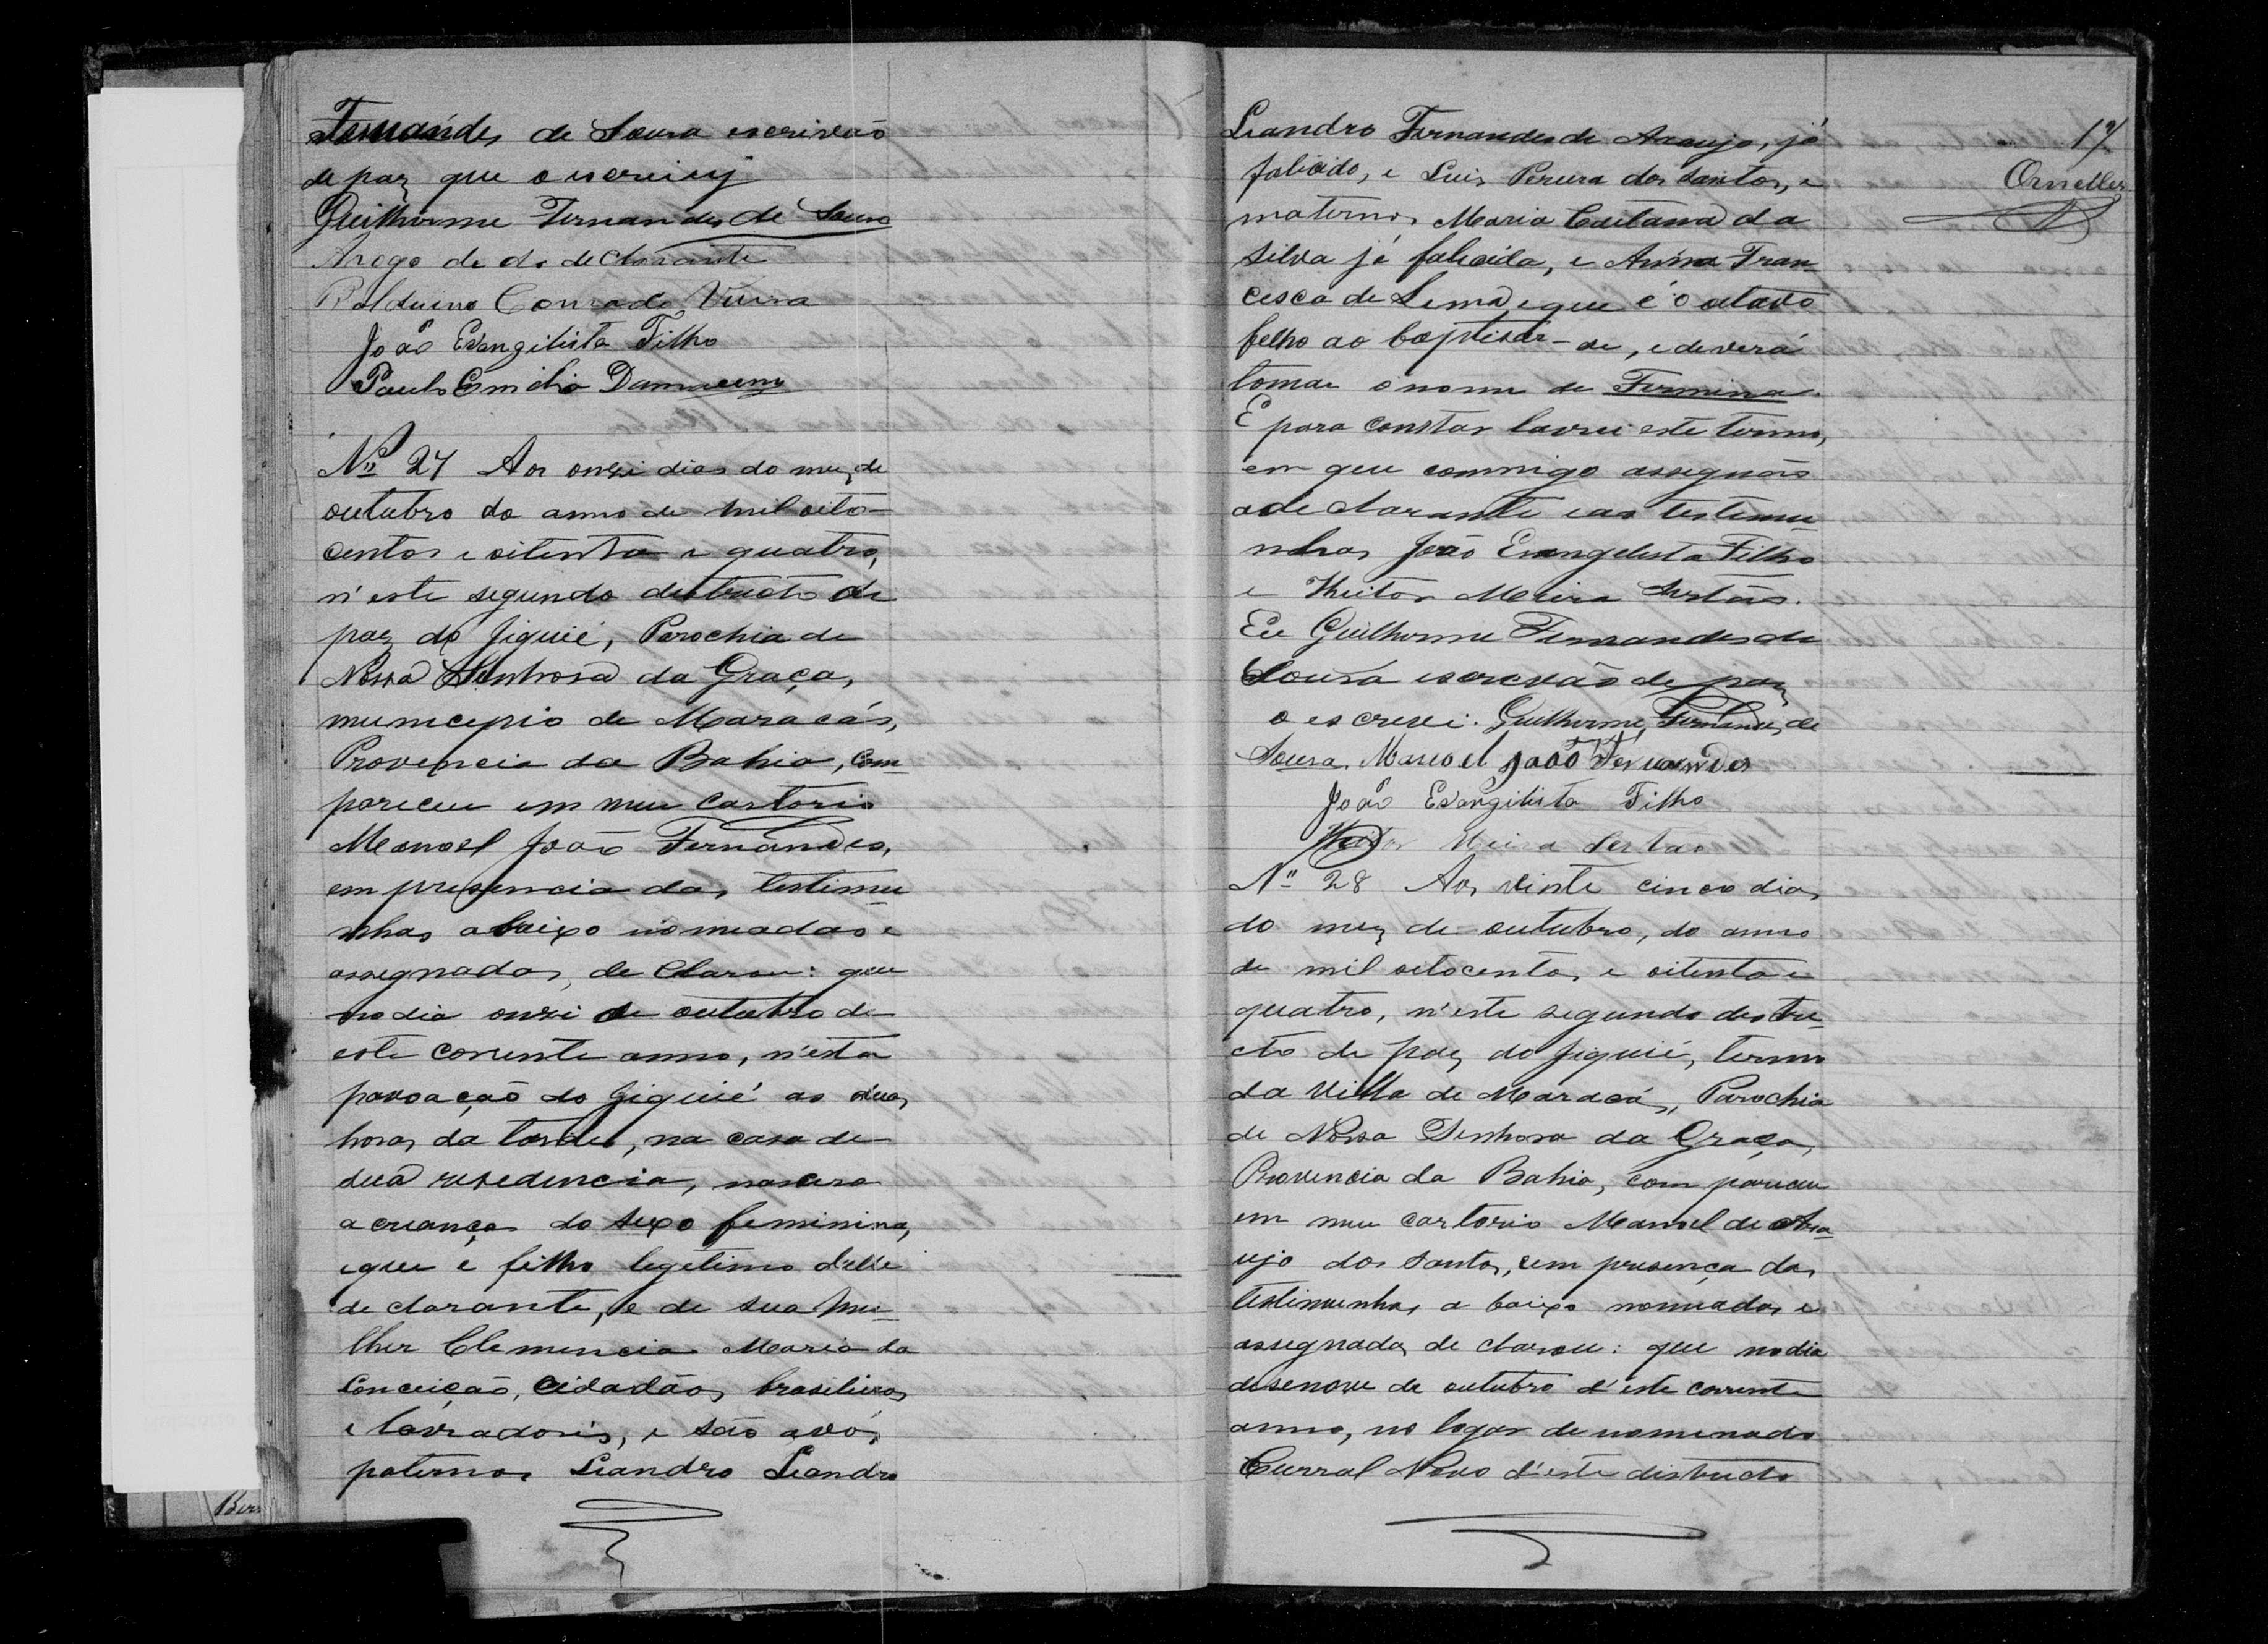 Fernandes de Sousa escrivão
de paz que o escrivy
Guilherme Fernandes de Sousa
Arogo de do declarante
Balduino Conrado Vieira
João Evangilista Filho
Paulo Emidio Damaceno
Nº 27 Aos onze dias do mez de
outubro do anno de mil oito-
centos e oitenta e quatro,
n'este segundo destricto de
paz do Jiquié, Parochia de
Nossa Senhora da Graça,
municepio de Maracás,
Provencia da Bahia, com-
pareceu em meu Cartorio
Manoel João Fernandes,
em presencia das testimu-
nhas abaixo nomeadas e
assegnadas, de Clarou: que
no dia onze de outubro de
este corrente anno, n'esta
povoação do Giquié as duas
horas da tarde, na casa de
sua resedencia, nascera
a creança do sexo feminina,
e que é filho legitimo d'elle
de clarante, e de sua mu-
lher Clemencia Maria da
Conceição, Cidadãos brasileiros
e lavradores, e são avós
paternos Leandro Leandro
Bern
17
Ornellas
Leandro Fernandes de Araujo, já
falicido, e Luis Pereira dos Santos, e
maternos Maria Caetana da
Silva já falicida, e Anna Fran-
cisca de Lema e que é o oitavo
felho ao baptisar-se, e deverá
tomar o nome de Firmina.
E para constar lavrei este termo,
em que commigo assegnão
o de clarante e as testemu-
nhas João Evangelista Filho
e Heitor Meira Sertão.
Eu Guilherme Fernandes de
Sousa escrevão de paz
o escrevi. Guilherme Fernandes de
Sousa. Manoel João Fernandes
João Evangilista Filho
Heitor Meira Sertão
Nº 28 Aos vinte cinco dias
do mez de outubro, do anno
de mil oitocentos e oitenta e
quatro, n'este segundo destri-
cto de paz do Jiquié, termo
da Villa de Maracás, Parochia
de Nossa Senhora da Graça,
Provencia da Bahia, com pareceu
em meu cartorio Manoel de Ara-
ujo dos Santos, e em presença das
testimunhas a baixo nomeadas e
assegnadas de clarou: que no dia
desenove de outubro d'este corrente
anno, no logar de nomenado
Curral Novo d'este districto